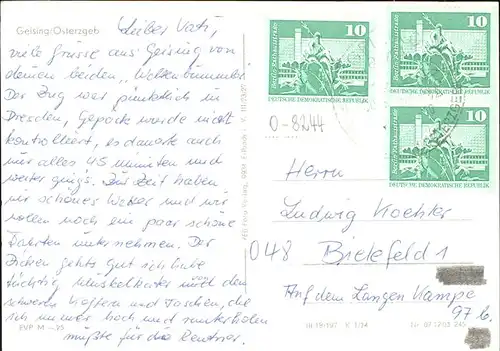 Geising/Osterzgeb.
Lieber Vati,
viele Grüsse aus Geising von
deinen beiden „Weltenbummlern“.
Der Zug war pünktlich in
Dresden, Gepäck wurde nicht
kontrolliert, es dauerte auch
nur alles 45 Minuten und
weiter ging's. Zur Zeit haben
wir schönes Wetter und wir
wollen noch ein paar schöne
Fahrten unternehmen. Der
Dicken gehts gut ich habe
tüchtig Muskelkater von den
schweren Koffern und Taschen, die
ich immer hoch und runterholen
mußte für die Rentner.
EVP M –,25
VEB Foto-Verlag
10
Berlin, Rathausstraße
DEUTSCHE DEMOKRATISCHE REPUBLIK
10
Berlin, Rathausstraße
DEUTSCHE DEMOKRATISCHE REPUBLIK
10
Berlin, Rathausstraße
DEUTSCHE DEMOKRATISCHE REPUBLIK
O-8244
Herrn
Ludwig Koehler
048 Bielefeld 1
Auf dem Langen Kampe
97 b.
245